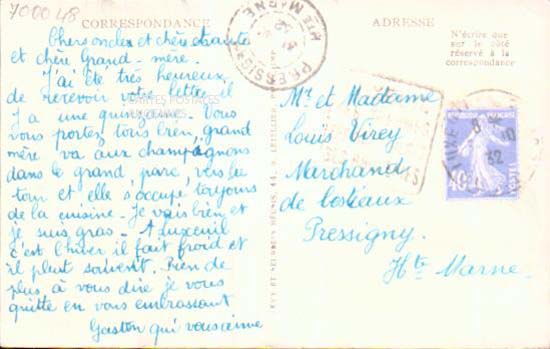 700048
CORRESPONDANCE
Chers oncles et chère tante
et chère Grand-mère.
J'ai été très heureux,
de recevoir votre lettre il
y a une quinzaine. Vous
vous portez tous bien, grand
mère va aux champignons
dans le grand parc, vers la
tour et elle s'occupe toujours
de la cuisine. Je vais bien et
je suis gras. A Luxeuil
c'est l'hiver il fait froid et
il pleut souvent. Rien de
plus à vous dire je vous
quitte en vous embrassant
Gaston qui vous aime
PRESSIGNY
HTE MARNE
ADRESSE
N'écrire que
sur le côté
réservé à la
correspondance
Mr et Madame
Louis Virey
Marchand
de bestiaux
Pressigny.
Hte Marne.
32
40c
POSTES